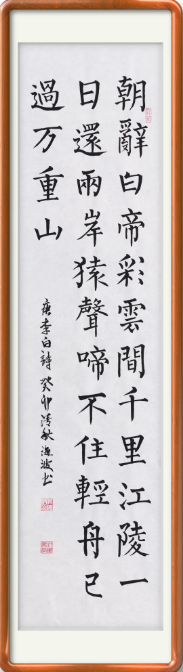 朝辭白帝彩雲間千里江陵一
日還兩岸猿聲啼不住輕舟已
過万重山
唐李白詩癸卯清秋源波书